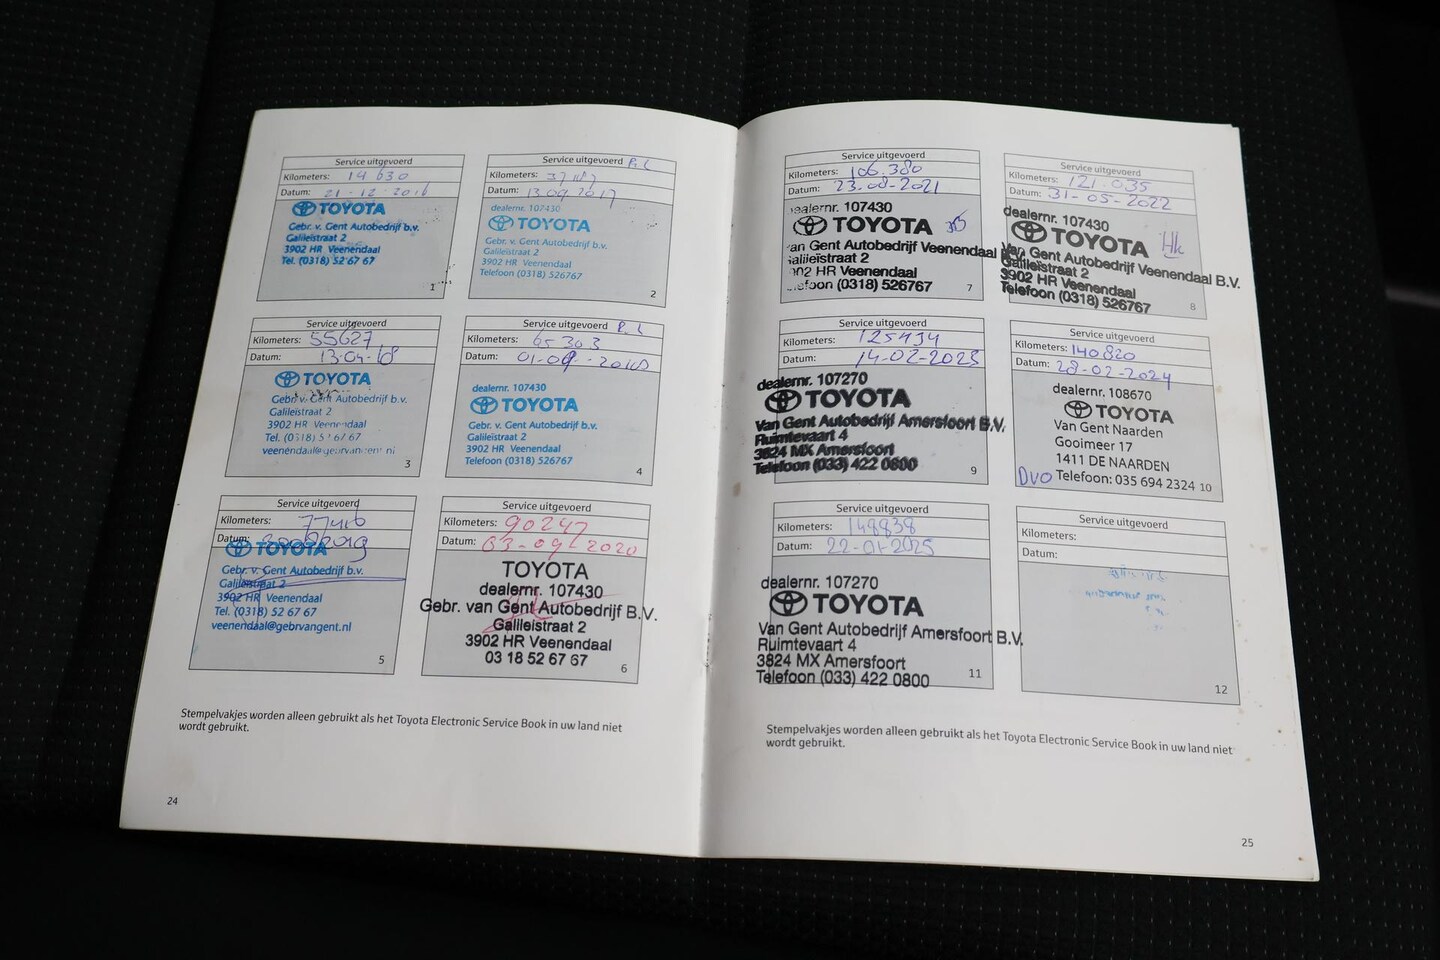 Service uitgevoerd
Kilometers: 14 630
Datum: 21-12-2016
TOYOTA
Gebr. v. Gent Autobedrijf b.v.
Galileïstraat 2
3902 HR Veenendaal
Tel. (0318) 52 67 67
1
Service uitgevoerd P.L
Kilometers:
Datum: 13 09 2017
dealernr. 107430
TOYOTA
Gebr. v. Gent Autobedrijf b.v.
Galileïstraat 2
3902 HR Veenendaal
Telefoon (0318) 526767
2
Service uitgevoerd
Kilometers: 55627
Datum: 13-04-18
TOYOTA
Gebr. v. Gent Autobedrijf b.v.
Galileïstraat 2
3902 HR Veenendaal
Tel. (0318) 52 67 67
veenendaal@gebrvangent.nl
3
Service uitgevoerd P.L
Kilometers: 65303
Datum:
dealernr. 107430
TOYOTA
Gebr. v. Gent Autobedrijf b.v.
Galileïstraat 2
3902 HR Veenendaal
Telefoon (0318) 526767
4
Service uitgevoerd
Kilometers: 77416
Datum:
TOYOTA
Gebr. v. Gent Autobedrijf b.v.
Galileïstraat 2
3902 HR Veenendaal
Tel. (0318) 52 67 67
veenendaal@gebrvangent.nl
5
Service uitgevoerd
Kilometers: 90247
Datum: 03-09-2020
TOYOTA
dealernr. 107430
Gebr. van Gent Autobedrijf B.V.
Galileistraat 2
3902 HR Veenendaal
03 18 52 67 67
6
Stempelvakjes worden alleen gebruikt als het Toyota Electronic Service Book in uw land niet
wordt gebruikt.
24
Service uitgevoerd
Kilometers: 106.380
Datum: 23-08-2021
dealernr. 107430
TOYOTA
van Gent Autobedrijf Veenendaal
Galileïstraat 2
3902 HR Veenendaal
Telefoon (0318) 526767
7
Service uitgevoerd
Kilometers: 121.035
Datum: 31-05-2022
dealernr. 107430
TOYOTA
Van Gent Autobedrijf Veenendaal B.V.
Galileïstraat 2
3902 HR Veenendaal
Telefoon (0318) 526767
8
Service uitgevoerd
Kilometers: 125434
Datum: 14-02-2023
dealernr. 107270
TOYOTA
Van Gent Autobedrijf Amersfoort B.V.
Ruimtevaart 4
3824 MX Amersfoort
Telefoon (033) 422 0800
9
Service uitgevoerd
Kilometers: 140820
Datum: 28-02-2024
dealernr. 108670
TOYOTA
Van Gent Naarden
Gooimeer 17
1411 DE NAARDEN
DVO Telefoon: 035 694 2324
10
Service uitgevoerd
Kilometers: 148838
Datum: 22-01-2025
dealernr. 107270
TOYOTA
Van Gent Autobedrijf Amersfoort B.V.
Ruimtevaart 4
3824 MX Amersfoort
Telefoon (033) 422 0800
11
Service uitgevoerd
Kilometers:
Datum:
12
Stempelvakjes worden alleen gebruikt als het Toyota Electronic Service Book in uw land niet
wordt gebruikt.
25